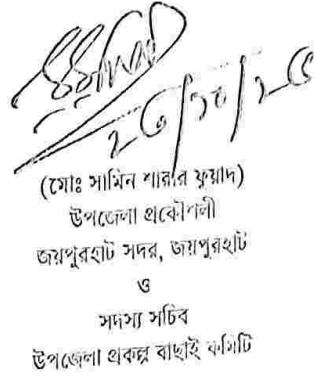 ২৬/১০/২৫
(মোঃ সামিন শারার ফুয়াদ)
উপজেলা প্রকৌশলী
জয়পুরহাট সদর, জয়পুরহাট
ও
সদস্য সচিব
উপজেলা প্রকল্প বাছাই কমিটি